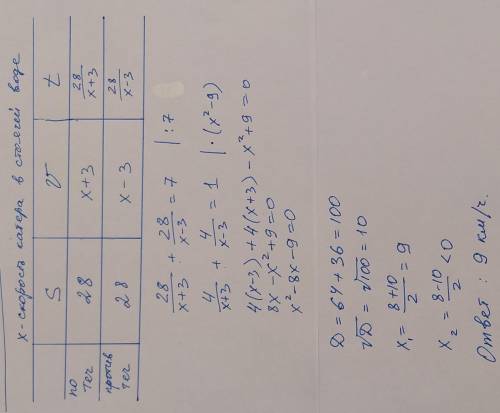 x - скорость катера в стоячей воде
S V t
по теч 28 x+3 28/(x+3)
против теч 28 x-3 28/(x-3)
28/(x+3) + 28/(x-3) = 7 | :7
4/(x+3) + 4/(x-3) = 1 | · (x²-9)
4(x-3) + 4(x+3) - x² + 9 = 0
8x - x² + 9 = 0
x² - 8x - 9 = 0
D = 64 + 36 = 100
√D = √100 = 10
x₁ = (8+10)/2 = 9
x₂ = (8-10)/2 < 0
Ответ: 9 км/ч.